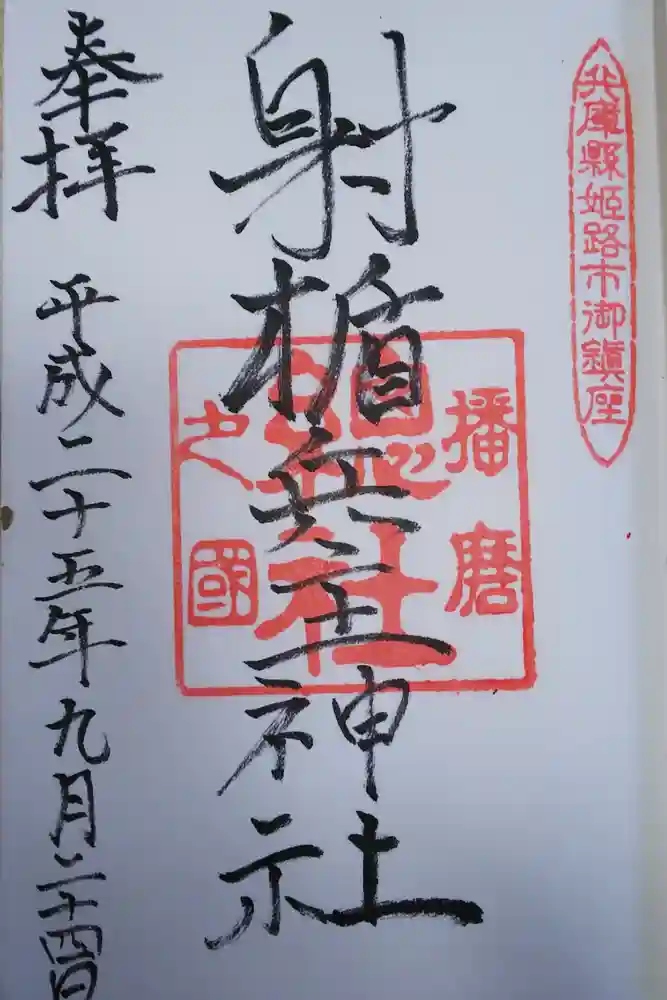 兵庫縣姫路市御鎮座
播磨
總社
之國
射楯兵主神社
奉拝
平成二十五年九月二十四日